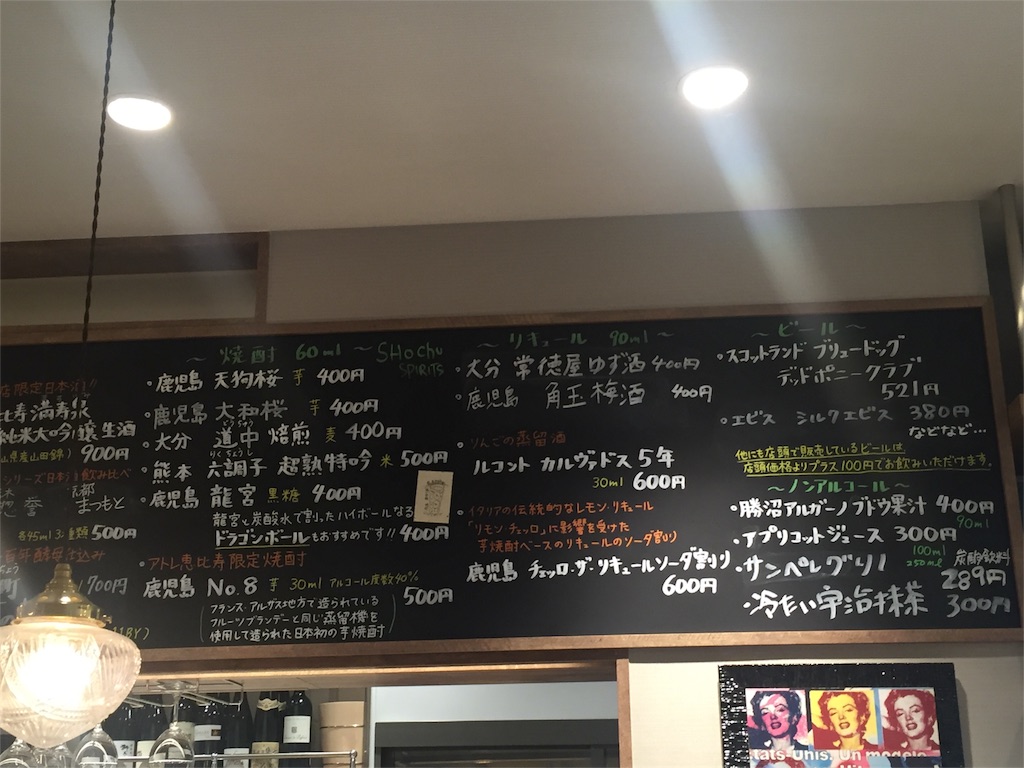 店限定日本酒!!
比寿満寿泉
純米大吟醸生酒
山県産山田錦) 900円
シリーズ日本酒飲み比べ
惣誉 まつもと
各95ml 3種類 500円
百年酵母仕込み
町 700円
~ 焼酎 60ml ~ SHochu SPIRITS
・鹿児島 天狗桜 芋 400円
・鹿児島 大和桜 芋 400円
・大分 道中 焙煎 麦 400円
りくちょうし
・熊本 六調子 超熟特吟 米 500円
・鹿児島 龍宮 黒糖 400円
龍宮を炭酸水で割ったハイボールなる
ドラゴンボールもおすすめです!! 400円
・アトレ恵比寿限定焼酎
鹿児島 No.8 芋 30ml アルコール度数40%
500円
(フランス・アルザス地方で造られている
フルーツブランデーと同じ蒸留機を
使用して造られた日本初の芋焼酎)
~ リキュール 90ml ~
・大分 常徳屋ゆず酒 400円
・鹿児島 角玉梅酒 400円
・りんごの蒸留酒
ルコント カルヴァドス 5年
30ml 600円
・イタリアの伝統的なレモンリキュール
「リモンチェッロ」に影響を受けた
芋焼酎ベースのリキュールのソーダ割り
鹿児島 チェッロ・ザ・リキュールソーダ割り
600円
~ ビール ~
・スコットランド ブリュードッグ
デッドポニークラブ
521円
・エビス シルクエビス 380円
などなど…
他にも店頭で販売しているビールは
店頭価格よりプラス100円でお飲みいただけます。
~ ノンアルコール ~
・勝沼アルガーノブドウ果汁 400円
90ml
・アプリコットジュース 300円
・サンペレグリノ 100ml 250ml 炭酸飲料
289円
・冷たい宇治抹茶 300円
tats-Unis. Un modèle